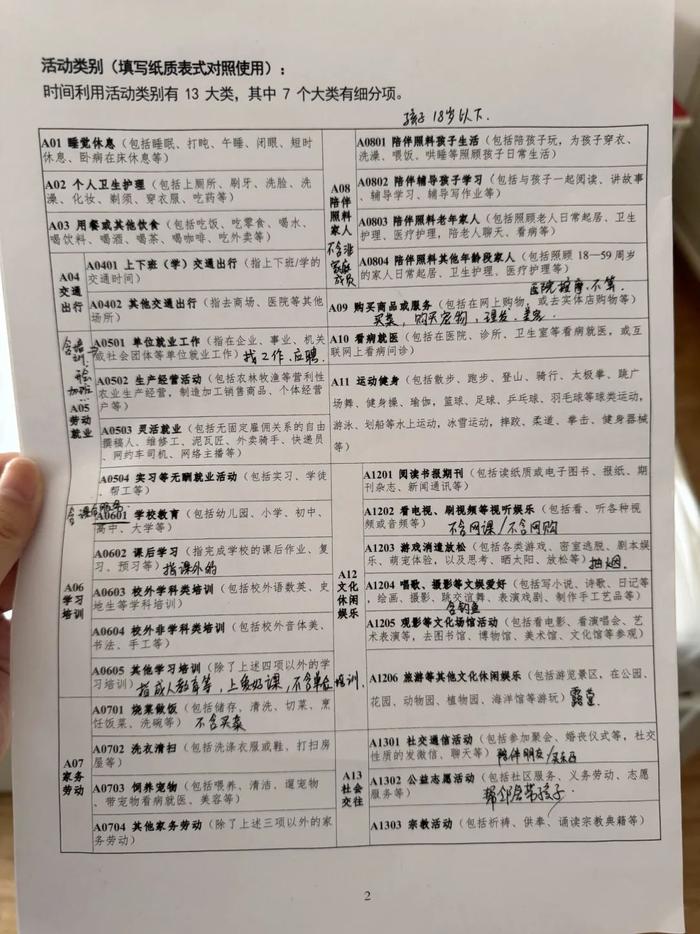 活动类别（填写纸质表式对照使用）：
时间利用活动类别有 13 大类，其中 7 个大类有细分项。
孩子 18岁以下.
A01 睡觉休息（包括睡眠、打盹、午睡、闭眼、短时
休息、卧病在床休息等）
A02 个人卫生护理（包括上厕所、刷牙、洗脸、洗
澡、化妆、剃须、穿衣服、吃药等）
A03 用餐或其他饮食（包括吃饭、吃零食、喝水、
喝饮料、喝酒、喝茶、喝咖啡、吃外卖等）
A04
交通
出行
A0401 上下班（学）交通出行（指上下班/学的
交通时间）
A0402 其他交通出行（指去商场、医院等其他
场所）
加班
A05
劳动
就业
A0501 单位就业工作（指在企业、事业、机关
或社会团体等单位就业工作）找工作、应聘
A0502 生产经营活动（包括农林牧渔等营利性
农业生产经营，制造加工销售商品、个体经营
户等）
A0503 灵活就业（包括无固定雇佣关系的自由
撰稿人、维修工、泥瓦匠、外卖骑手、快递员
、网约车司机、网络主播等）
A0504 实习等无酬就业活动（包括实习、学徒
、帮工等）
A06
学习
培训
A0601 学校教育（包括幼儿园、小学、初中、
高中、大学等）
A0602 课后学习（指完成学校的课后作业、复
习、预习等）指课外的
A0603 校外学科类培训（包括校外语数英、史
地生等学科培训）
A0604 校外非学科类培训（包括校外音体美、
书法、手工等）
A0605 其他学习培训（除了上述四项以外的学
习培训）指成人教育等，上爱好课，不含单位培训.
A07
家务
劳动
A0701 烧菜做饭（包括储存、清洗、切菜、烹
饪饭菜、洗碗等）不含买菜
A0702 洗衣清扫（包括洗涤衣服或鞋、打扫房
屋等）
A0703 饲养宠物（包括喂养、清洁、遛宠物
、带宠物看病就医、美容等）
A0704 其他家务劳动（除了上述三项以外的家
务劳动）
A08
陪伴
照料
家人
不含非
家庭
成员
A0801 陪伴照料孩子生活（包括陪孩子玩，为孩子穿衣、
洗澡、喂饭、哄睡等照顾孩子日常生活）
A0802 陪伴辅导孩子学习（包括与孩子一起阅读、讲故事
、辅导学习、辅导写作业等）
A0803 陪伴照料老年家人（包括照顾老人日常起居、卫生
护理、医疗护理，陪老人聊天、看病等）
A0804 陪伴照料其他年龄段家人（包括照顾 18—59 周岁
的家人日常起居、卫生护理、医疗护理等）
医院按摩不算.
A09 购买商品或服务（包括在网上购物，或去实体店购物等）
买菜，购买宠物，理发、美容
A10 看病就医（包括在医院、诊所、卫生室等看病就医，或互
联网上看病问诊）
A11 运动健身（包括散步、跑步、登山、骑行、太极拳、跳广
场舞、健身操、瑜伽，篮球、足球、乒乓球、羽毛球等球类运动，
游泳、划船等水上运动，冰雪运动，摔跤、柔道、拳击、健身器械
等）
A12
文化
休闲
娱乐
A1201 阅读书报期刊（包括读纸质或电子图书、报纸、期
刊杂志、新闻通讯等）
A1202 看电视、刷视频等视听娱乐（包括看、听各种视
频或音频等）不含网课/不含网购
A1203 游戏消遣放松（包括各类游戏、密室逃脱、剧本娱
乐、萌宠体验，以及思考、晒太阳、放松等）抽烟.
A1204 唱歌、摄影等文娱爱好（包括写小说、诗歌、日记等
，绘画、摄影、跳交谊舞、表演戏剧、制作手工艺品等）
含钓鱼
A1205 观影等文化场馆活动（包括看电影、看演唱会、艺
术表演等，去图书馆、博物馆、美术馆、文化馆等参观）
A1206 旅游等其他文化休闲娱乐（包括游览景区，在公园、
花园、动物园、植物园、海洋馆等游玩）露营.
A13
社会
交往
A1301 社交通信活动（包括参加聚会、婚丧仪式等，社交
性质的发微信、聊天等）陪伴朋友/买东西
A1302 公益志愿活动（包括社区服务、义务劳动、志愿
服务等）帮邻舍带孩子
A1303 宗教活动（包括祈祷、供奉、诵读宗教典籍等）
2